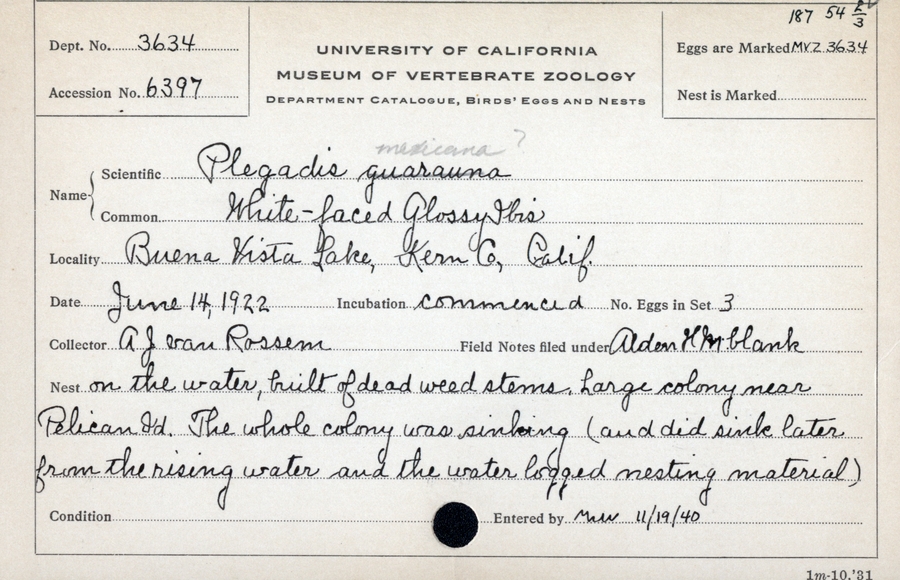 187 54 2/3
Dept. No. 3634
UNIVERSITY OF CALIFORNIA
MUSEUM OF VERTEBRATE ZOOLOGY
DEPARTMENT CATALOGUE, BIRDS' EGGS AND NESTS
Eggs are Marked MVZ 3634
Accession No. 6397
Nest is Marked
mexicana ?
Name Scientific Plegadis guarauna
Common White-faced Glossy Ibis
Locality Buena Vista Lake, Kern Co, Calif.
Date June 14, 1922 Incubation commenced No. Eggs in Set 3
Collector A J van Rossem Field Notes filed under Alden H
Nest on the water, built of dead weed stems. Large colony near
Pelican Id. The whole colony was sinking (and did sink later
from the rising water and the water logged nesting material)
Condition Entered by 11/19/40
1m-10,'31